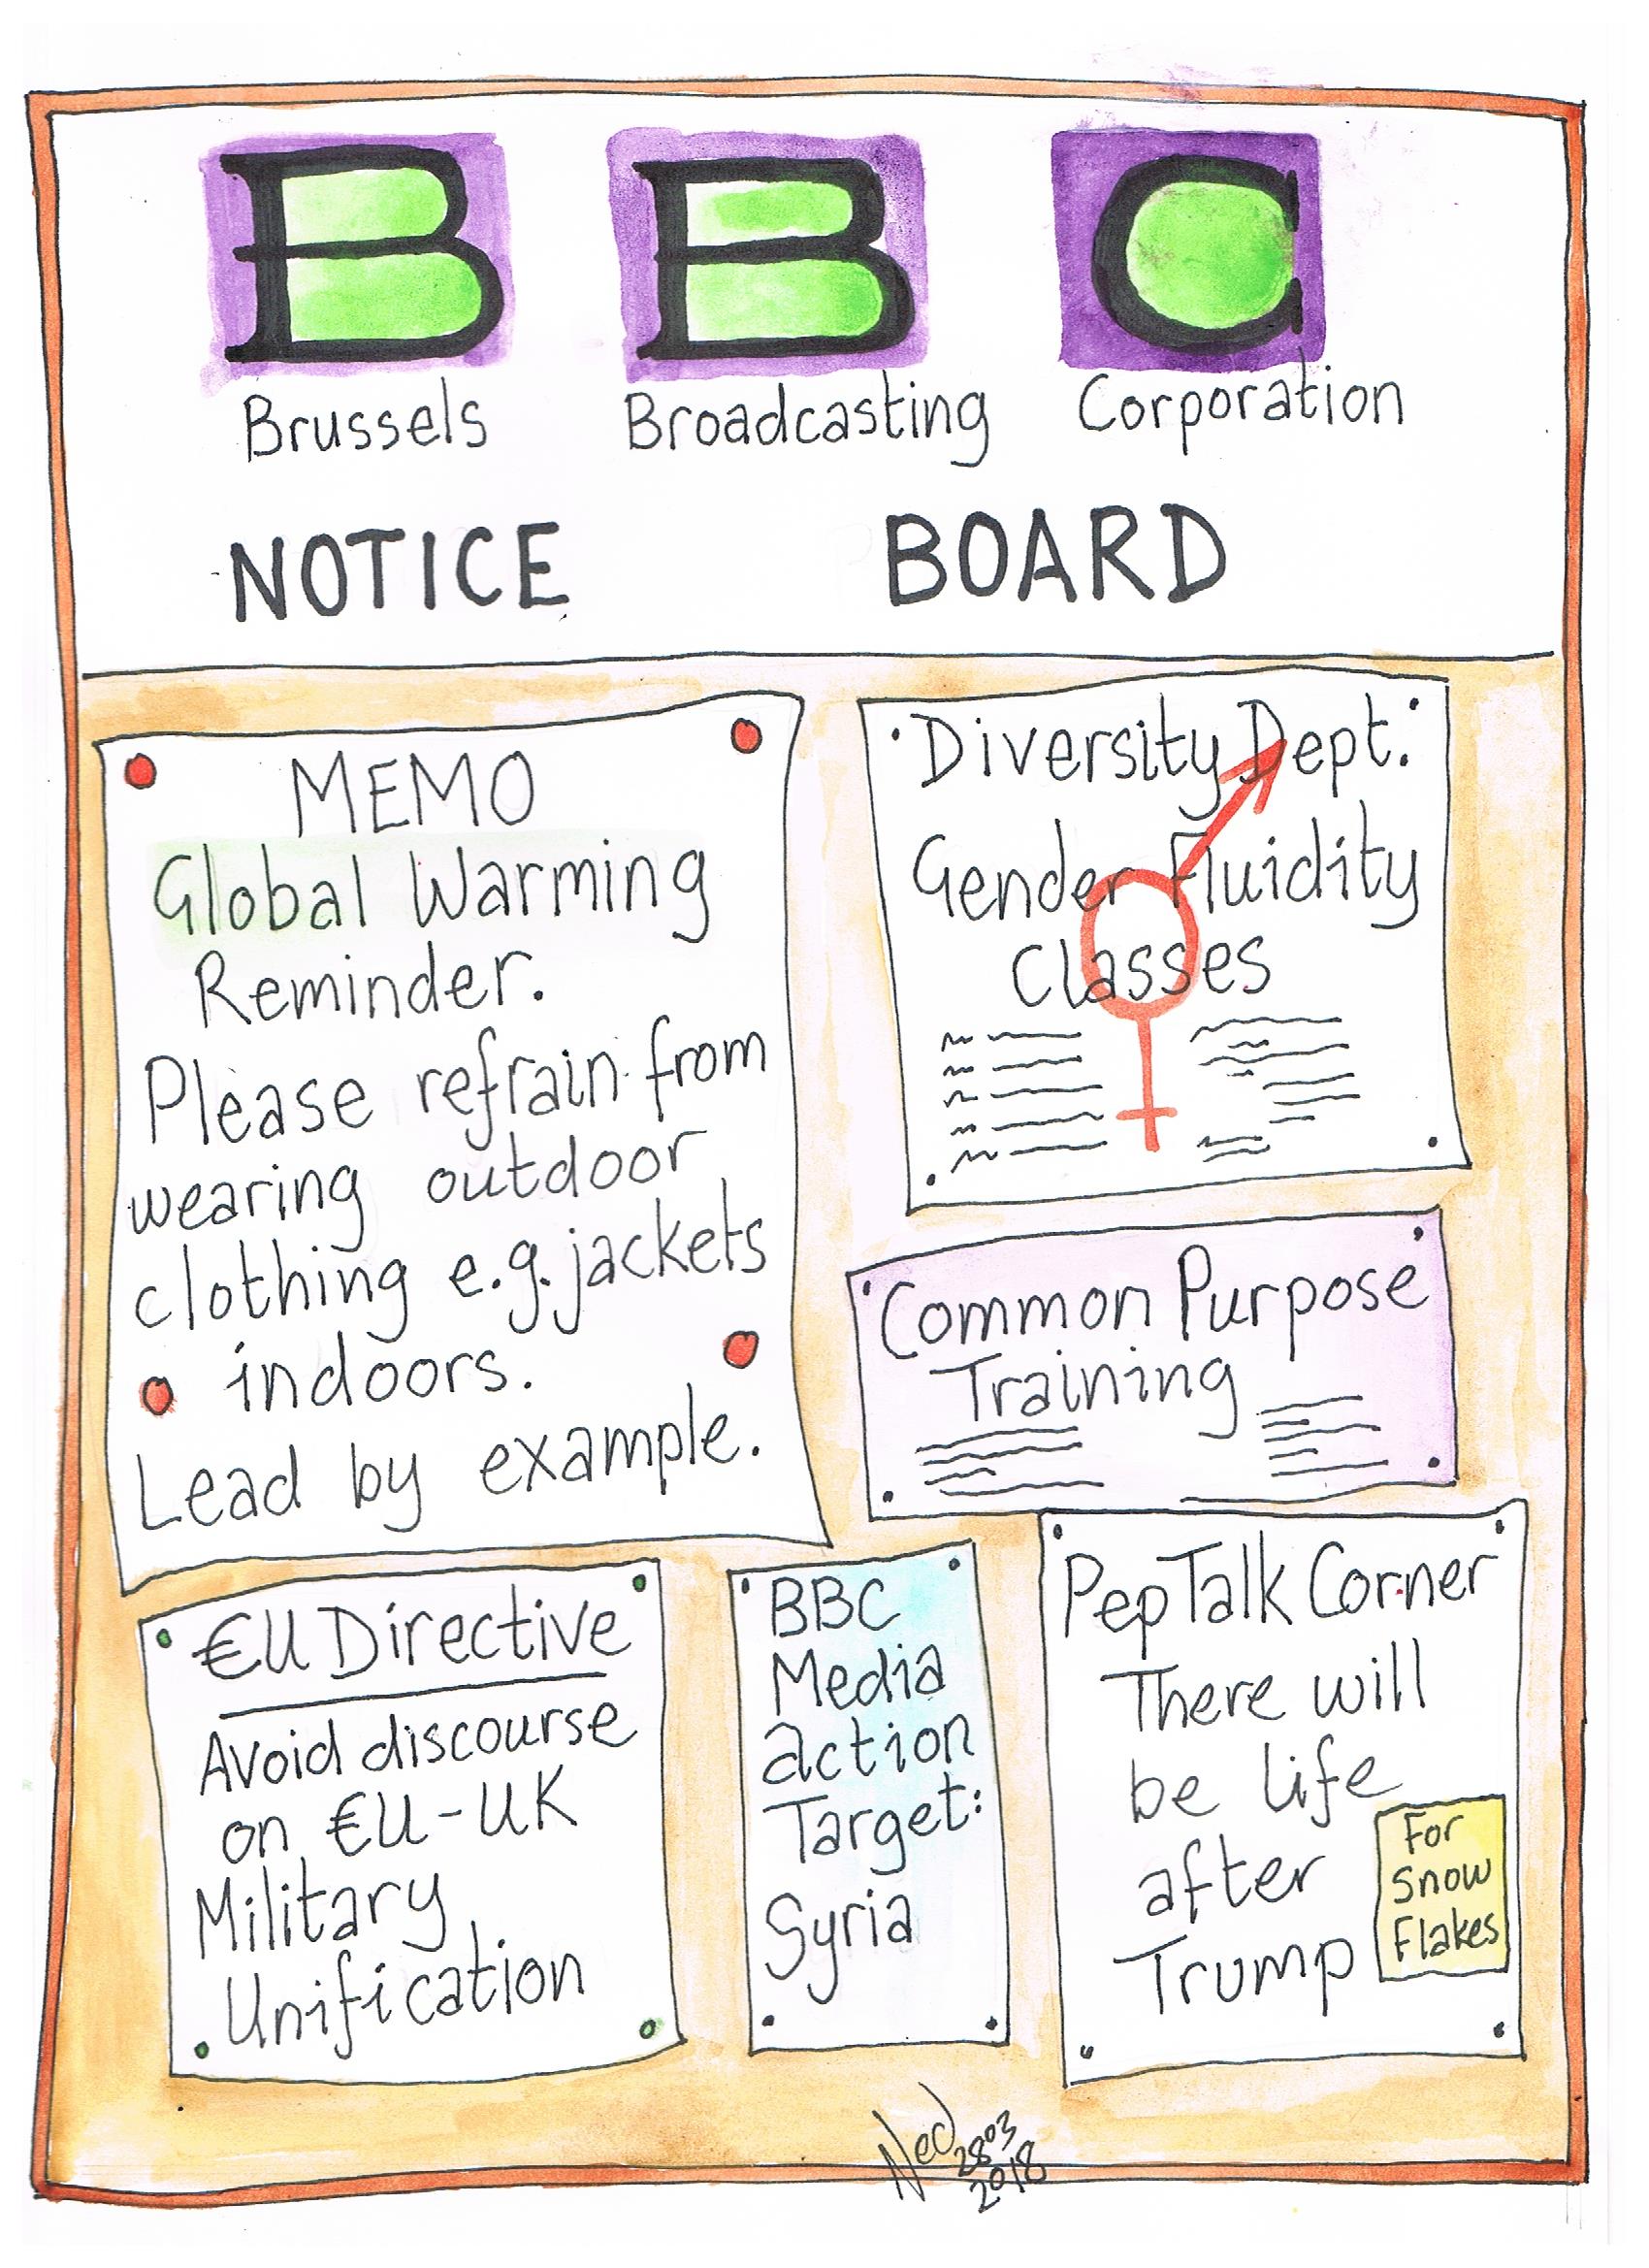 B B C
Brussels Broadcasting Corporation
NOTICE BOARD
MEMO
Global Warming
Reminder.
Please refrain from
wearing outdoor
clothing e.g. jackets
indoors.
Lead by example.
Diversity Dept.
Gender Fluidity
Classes
Common Purpose
Training
€U Directive
Avoid discourse
on €U-UK
Military
Unification
BBC
Media
action
Target:
Syria
Pep Talk Corner
There will
be life
after
Trump
For
Snow
Flakes
Ned
2803
2018